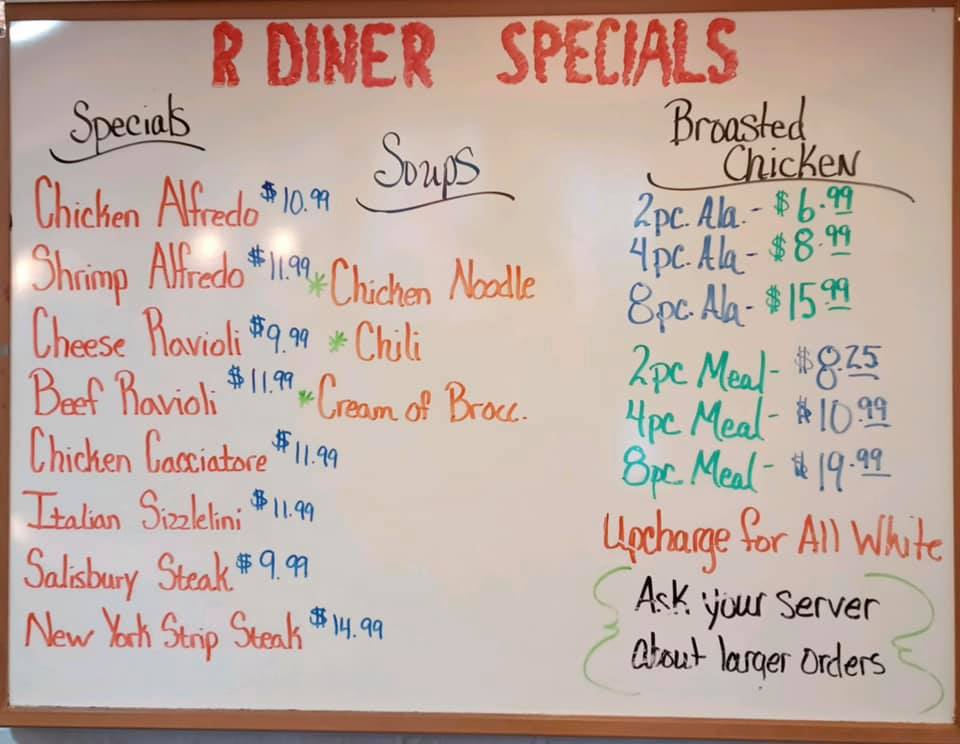 R DINER SPECIALS
Specials
Chicken Alfredo $10.99
Shrimp Alfredo $11.99
Cheese Ravioli $9.99
Beef Ravioli $11.99
Chicken Cacciatore $11.99
Italian Sizzlelini $11.99
Salisbury Steak $9.99
New York Strip Steak $14.99
Soups
* Chicken Noodle
* Chili
* Cream of Brocc.
Broasted
Chicken
2pc. Ala.- $6.99
4pc. Ala- $8.99
8pc. Ala- $15.99
2pc Meal- $8.25
4pc Meal- $10.99
8pc. Meal- $19.99
Upcharge for All White
Ask your server
about larger orders